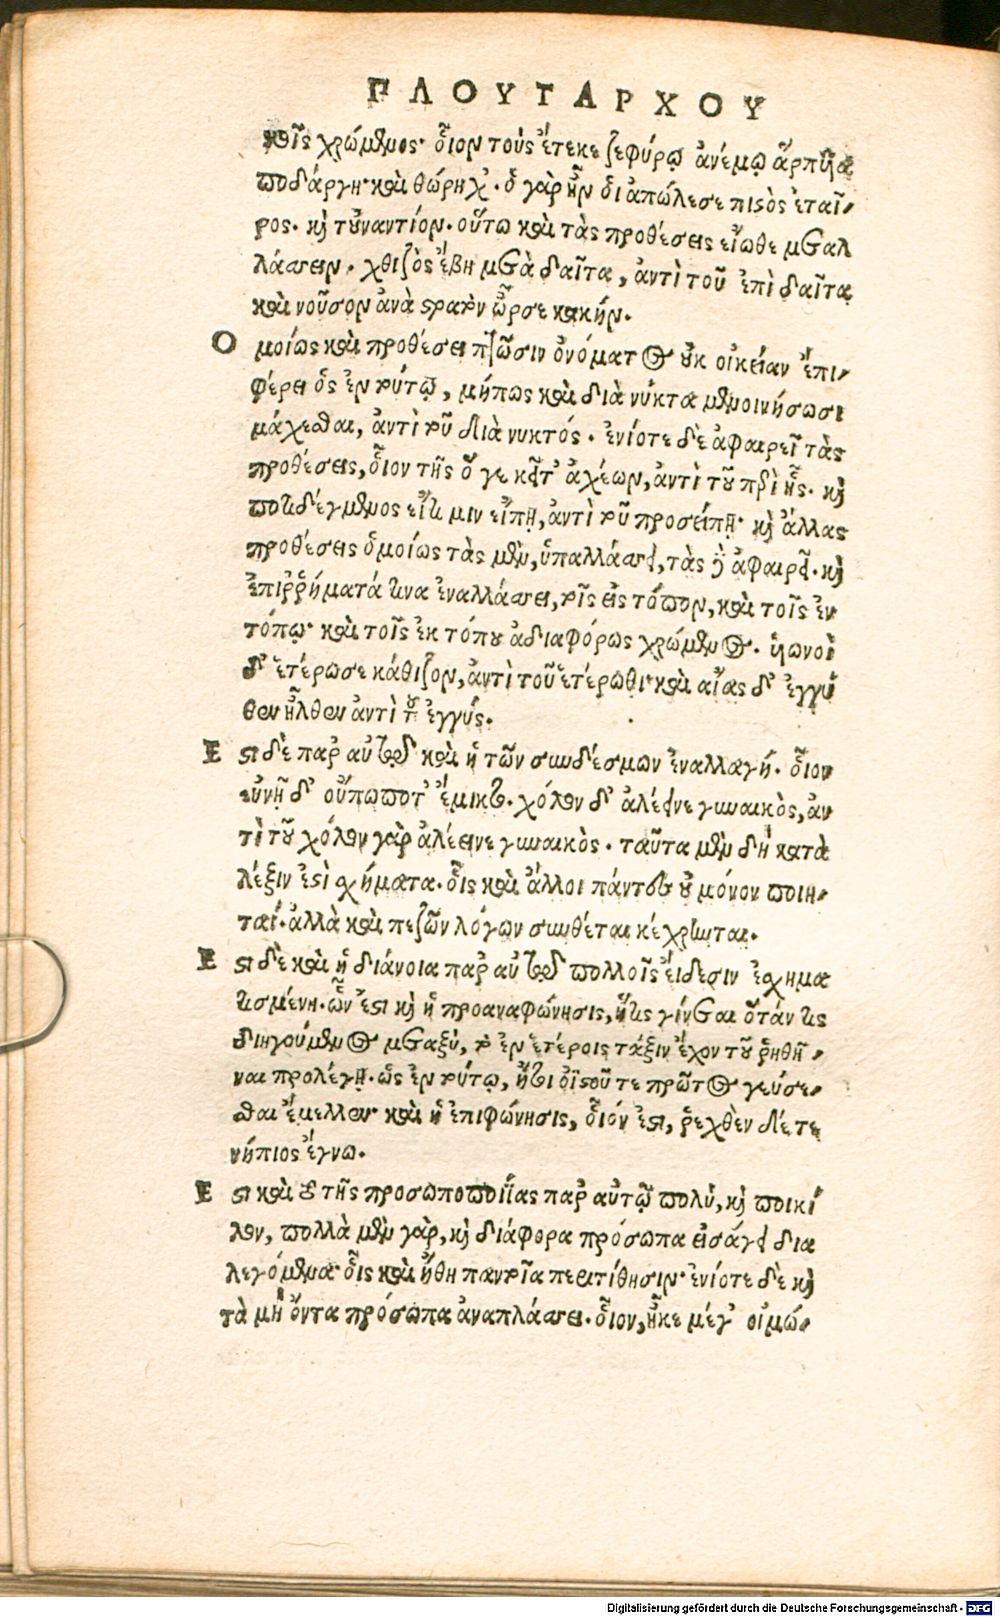 ΠΛΟΥΤΑΡΧΟΥ
τοῖς χρώμενος· οἷον τοὺς ἔτεκε ζεφύρῳ ἀνέμῳ ἅρπυια
ποδάργη· καὶ θώρηχ'. ὃ γὰρ ἦν οἱ ἀπώλεσε πιστὸς ἑταῖ-
ρος. καὶ τοὐναντίον. οὕτω καὶ τὰς προθέσεις εἴωθε μεταλ
λάσσειν. χθιζὸς ἔβη μετὰ δαῖτα, ἀντὶ τοῦ ἐπὶ δαῖτα
καὶ νοῦσον ἀνὰ στρατὸν ὦρσε κακήν.
Ομοίως καὶ προθέσει πτῶσιν ὀνόματος οὐκ οἰκείαν ἐπι-
φέρει ὡς ἐν τούτῳ, μήπως καὶ διὰ νύκτα μενοινήσωσι
μάχεσθαι, ἀντὶ τοῦ διὰ νυκτός. ἐνίοτε δὲ ἀφαιρεῖ τὰς
προθέσεις, οἷον τῆς ὅ γε κεῖτ' ἀχέων, ἀντὶ τοῦ περὶ ἧς. καὶ
ποτιδέγμενος εἴ τι μιν εἴπῃ, ἀντὶ τοῦ προσείπῃ· καὶ ἄλλας
προθέσεις ὁμοίως τὰς μὲν, ὑπαλλάσσει, τὰς δὲ ἀφαιρεῖ. καὶ
ἐπιῤῥήματά τινα ἐναλλάσσει, τοῖς εἰς τόπον, καὶ τοῖς ἐν
τόπῳ· καὶ τοῖς ἐκ τόπου ἀδιαφόρως χρώμενος. ἠῶνοὶ
δ' ἑτέρωσε κάθιζον, ἀντὶ τοῦ ἑτέρωθι· καὶ αἴας δ' ἐγγύ
θεν ἦλθεν ἀντὶ τοῦ ἐγγύς.
Εστι δὲ παρ' αὐτῷ καὶ ἡ τῶν συνδέσμων ἐναλλαγή. οἷον
εὐνῇ δ' οὔπωποτ' ἔμικτο. χόλον δ' ἀλέεινε γυναικὸς, ἀν
τὶ τοῦ χόλον γὰρ ἀλέεινε γυναικός. ταῦτα μὲν δὴ κατὰ
λέξιν ἐστὶ σχήματα. οἷς καὶ ἄλλοι πάντες οὐ μόνον ποιη-
ταί. ἀλλὰ καὶ πεζῶν λόγων συνθέται κέχρηνται.
Εστι δὲ καὶ ἡ διάνοια παρ' αὐτῷ πολλοῖς εἴδεσιν ἐσχημα
τισμένη. ὧν ἐστι καὶ ἡ προαναφώνησις, ἥτις γίνεται ὅταν τις
διηγούμενος μεταξὺ, τὸ ἐν ἑτέροις τάξιν ἔχον τοῦ ῥηθῆ-
ναι προλέγῃ. ὡς ἐν τούτῳ, ἤτοι ὀϊστοῦ τε πρῶτος γεύσε-
σθαι ἔμελλεν· καὶ ἡ ἐπιφώνησις, οἷόν ἐστι, ῥεχθὲν δέ τε
νήπιος ἔγνω.
Εστι καὶ τὸ τῆς προσωποποιΐας παρ' αὐτῷ πολύ, καὶ ποικί
λον, πολλὰ μὲν γὰρ, καὶ διάφορα πρόσωπα εἰσάγει δια
λεγόμενα· οἷς καὶ ἤθη παντοῖα περιτίθησιν· ἐνίοτε δὲ καὶ
τὰ μὴ ὄντα πρόσωπα ἀναπλάσσει. οἷον, ἦκε μέγ' οἰμώ-
Digitalisierung gefördert durch die Deutsche Forschungsgemeinschaft - DFG